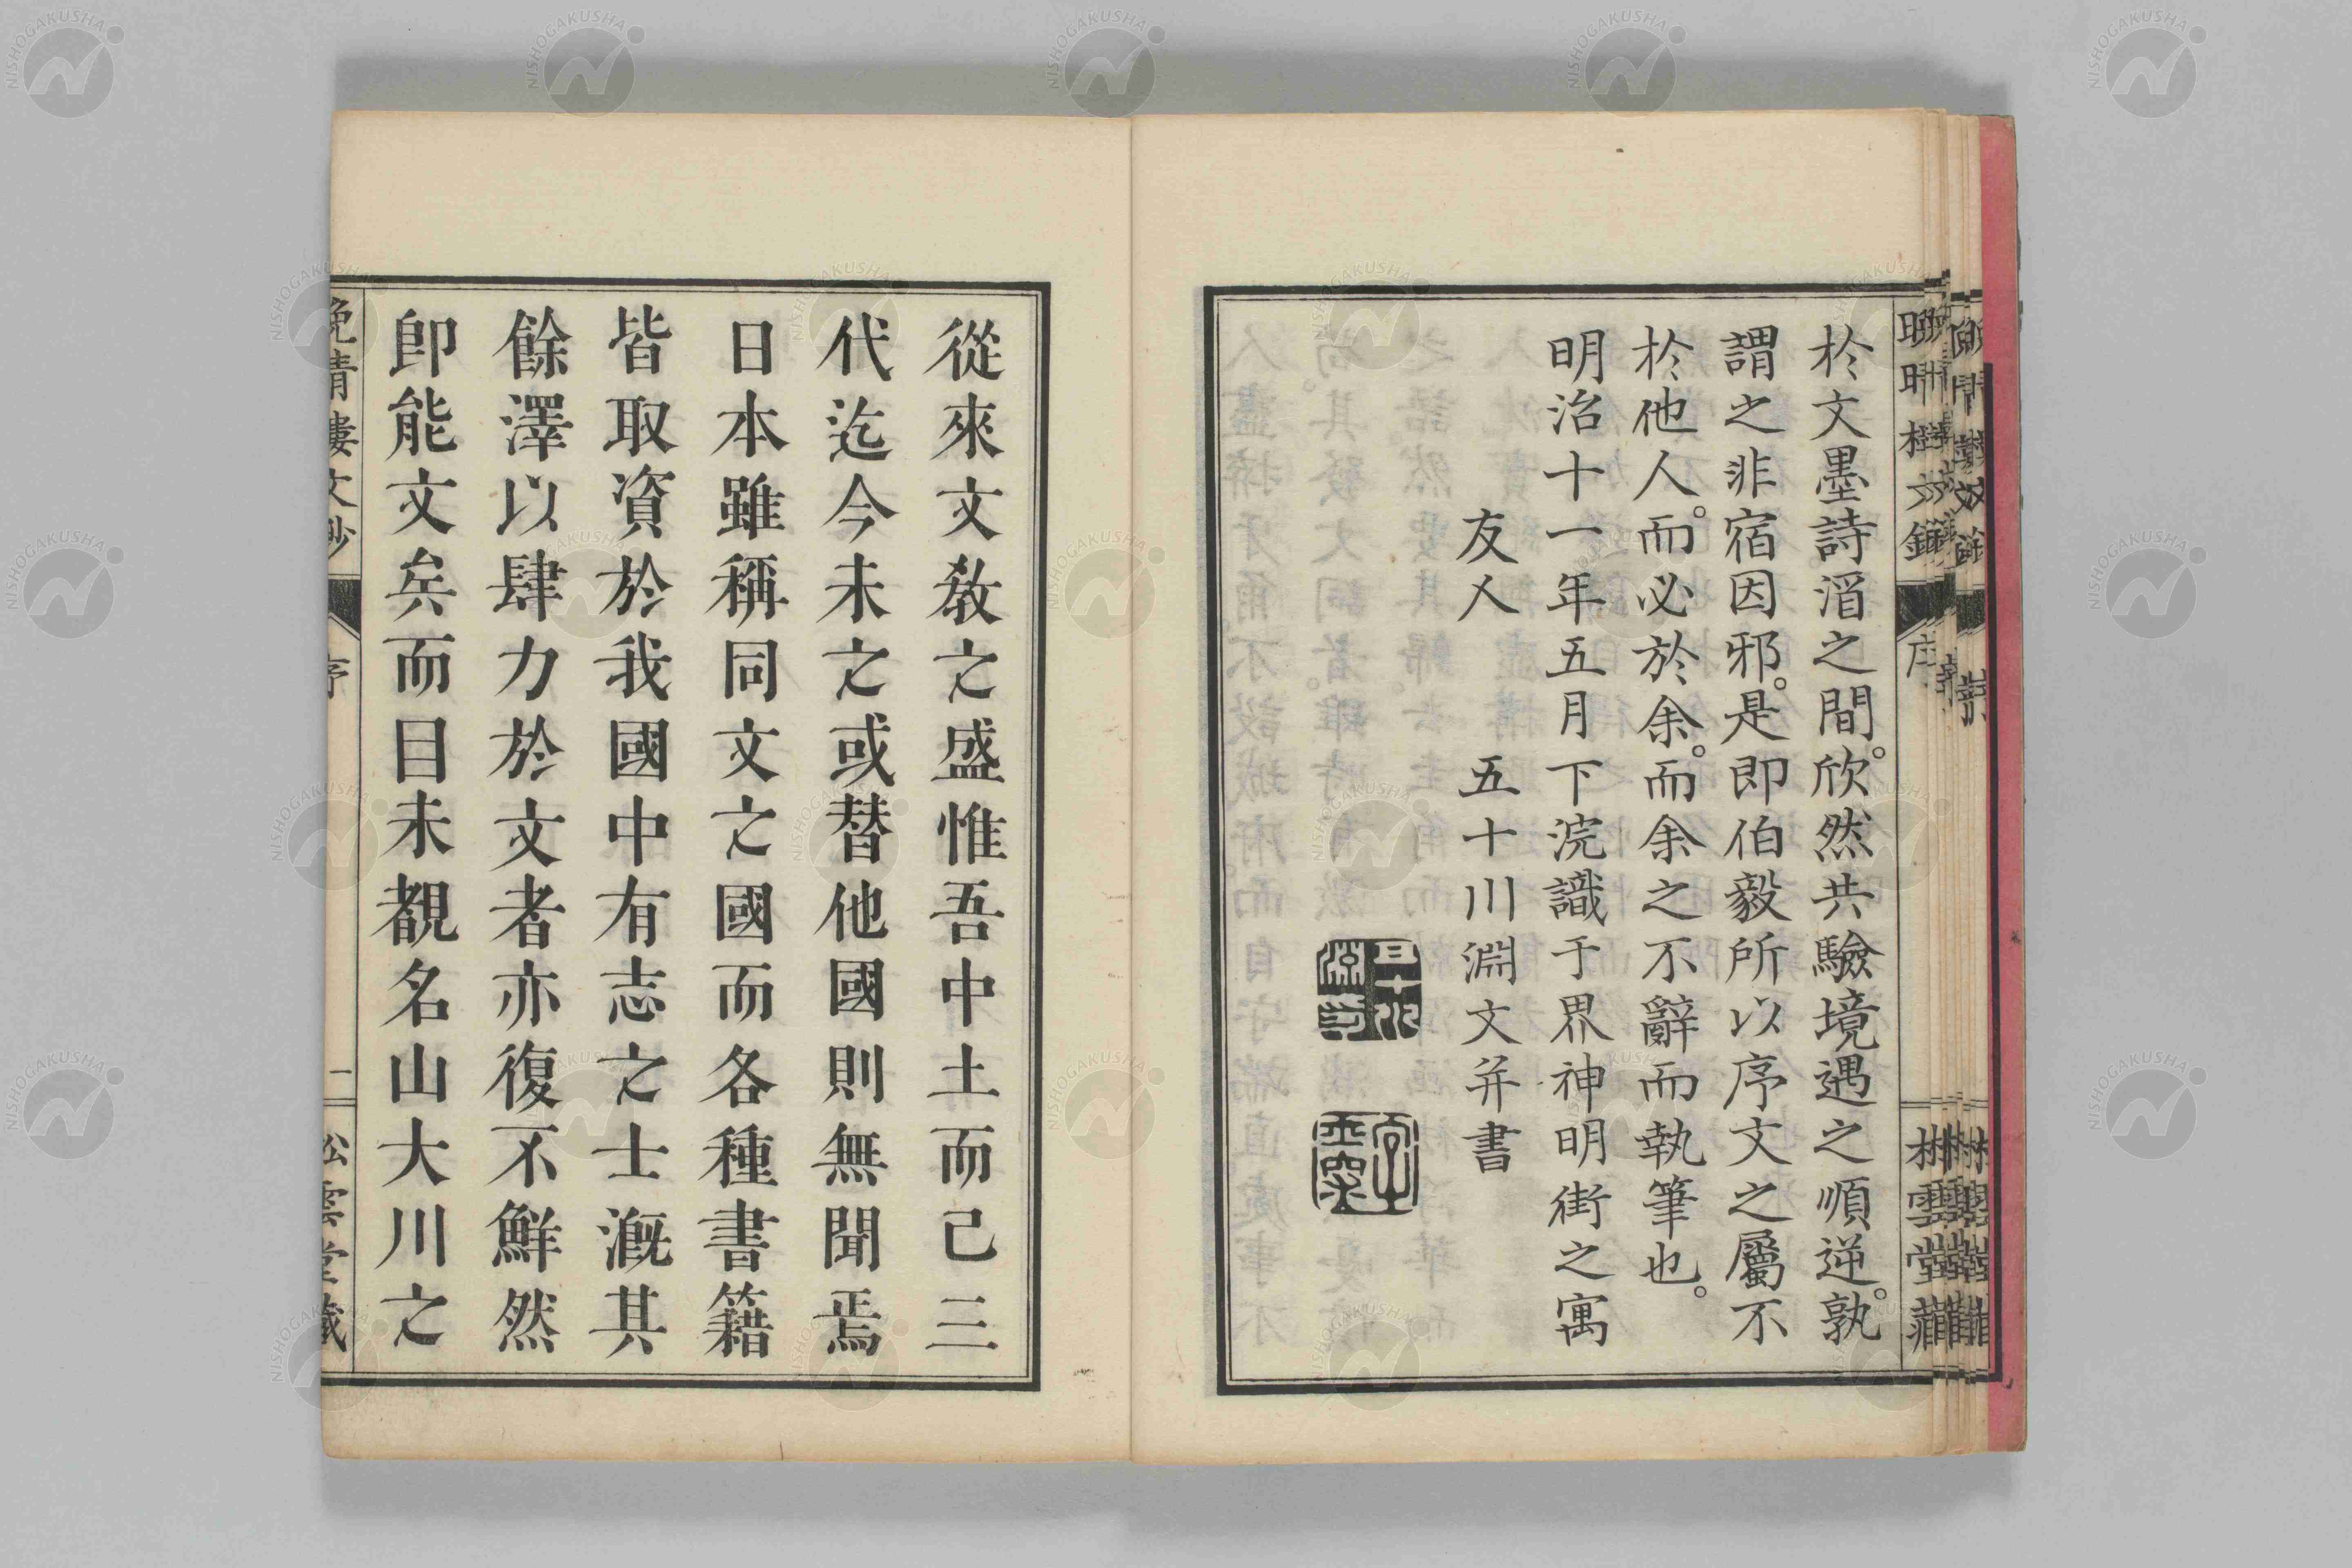 於文墨詩酒之間。欣然共驗境遇之順逆。孰
謂之非宿因邪。是即伯毅所以序文之屬不
於他人。而必於余。而余之不辭而執筆也。
明治十一年五月下浣識于界神明街之寓
友人 五十川淵文并書
從來文教之盛惟吾中土而已三
代迄今未之或替他國則無聞焉
日本雖稱同文之國而各種書籍
皆取資於我國中有志之士漑其
餘澤以肆力於文者亦復不鮮然
即能文矣而目未覩名山大川之
晚晴樓文鈔 序 二 松雲堂藏
NISHOGAKUSHA